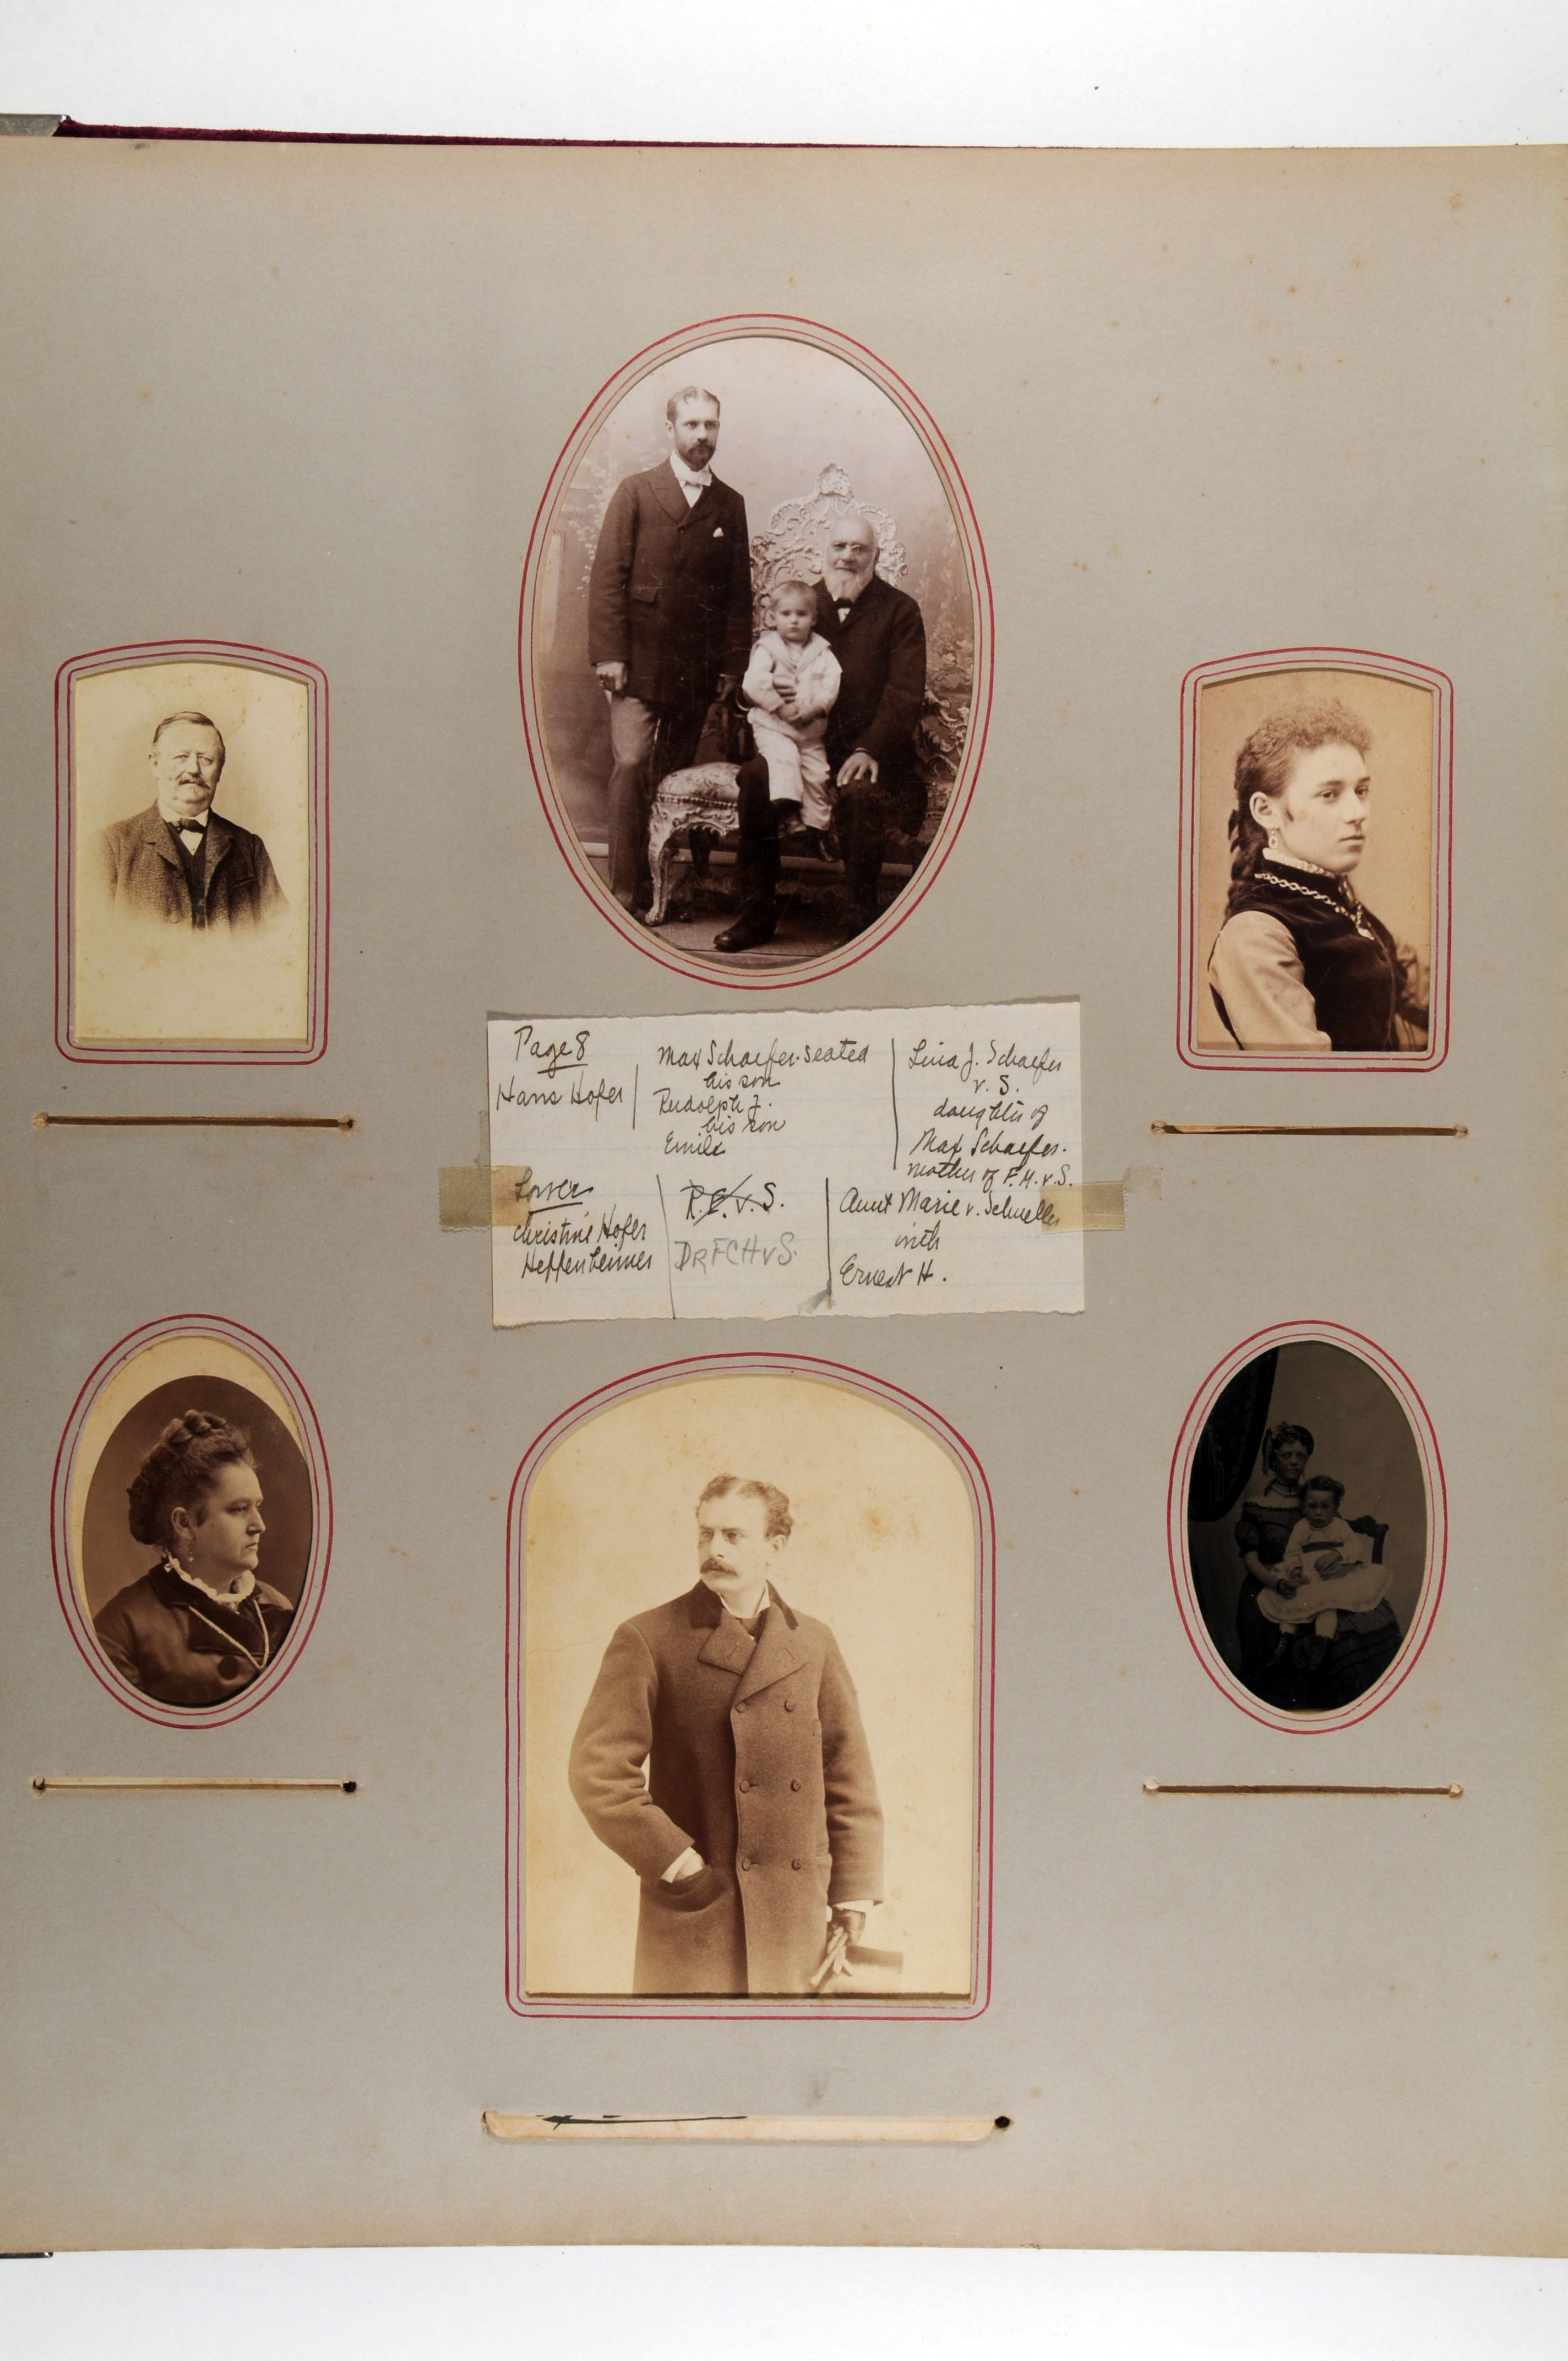 Page 8
Hans Hofer
Max Schaefer-seated
his son
Rudolph J.
his son
Emile
Lina J. Schaefer
v. S.
daughter of
Max Schaefer.
mother of F. H. v. S.
Lower
Christine Hofer
Heppenheimer
R.E. v. S.
DR FCHvS.
Aunt Marie v. Schueller
with
Ernest H.